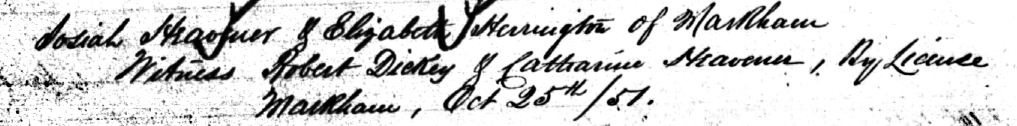 Josiah Heavener & Elizabeth Herrington of Markham
Witness Robert Dickey & Catharine Heavener, By License
Markham, Oct 25th/51.